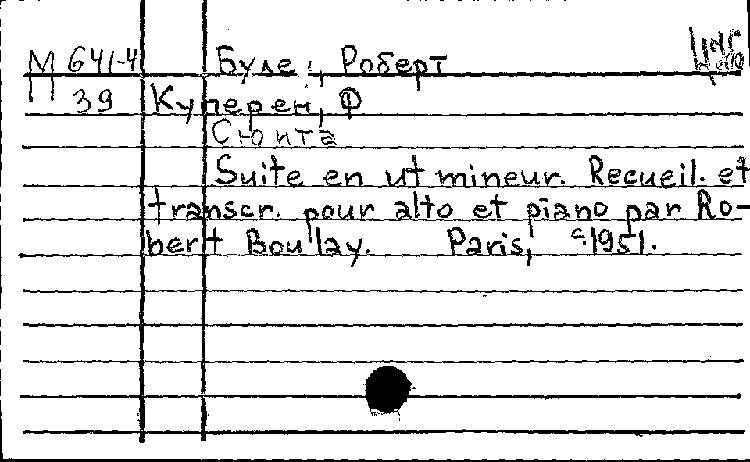 М 641-4 Буле , Роберт
39 Куперен, Ф
Сюита
Suite en ut mineur. Recueil. et
transcr. pour alto et piano par Ro-
bert Boulay. Paris, c.1951.